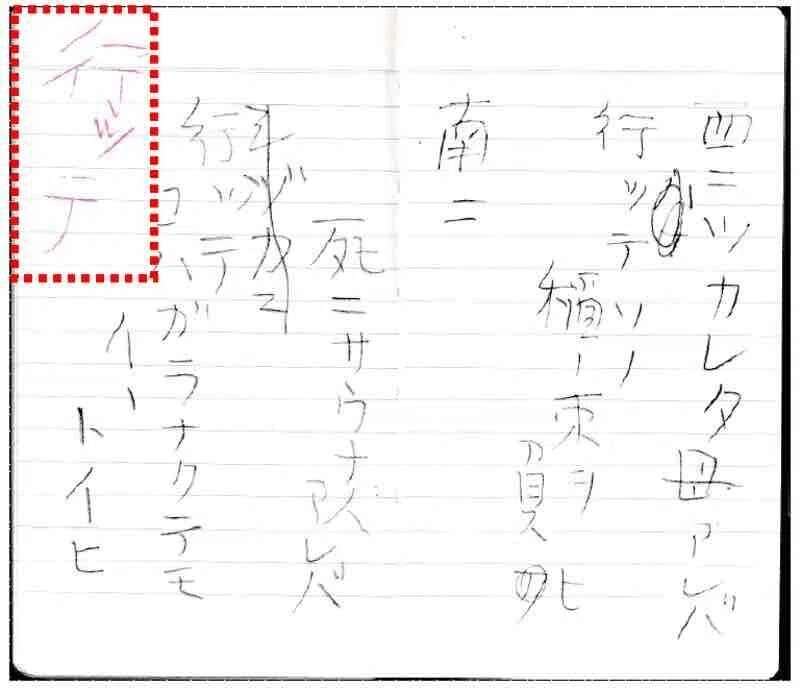 西ニツカレタ母アレバ
行ッテソノ
稲ノ束ヲ
負ヒ
南ニ
死ニサウナ人アレバ
行ッテ
コハガラナクテモ
イヽトイヒ
行ッテ